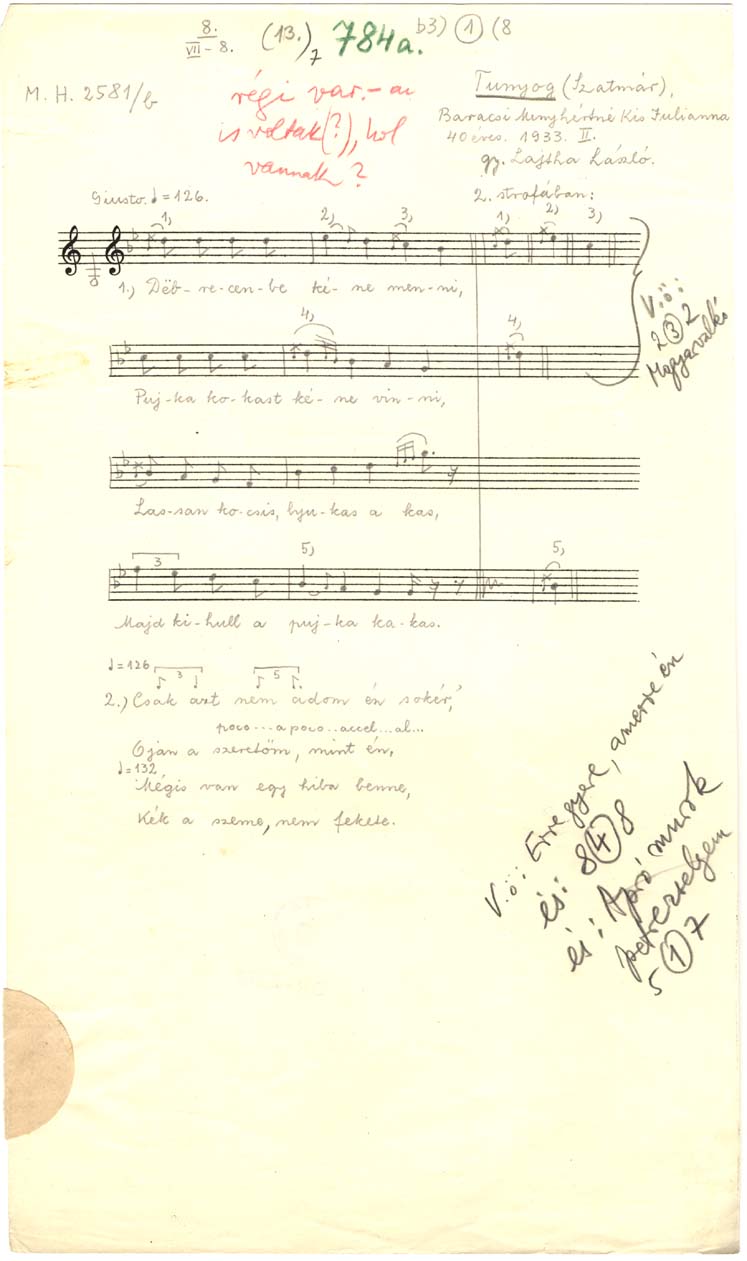 8.
VII-8. (13.)7 784a. b3) 1 (8
M. H. 2581/b
régi var.-ai
is voltak(?), hol
vannak?
Tunyog (Szatmár),
Baracsi Menyhértné Kis Julianna
40 éves. 1933. II.
gy. Lajtha László.
Giusto. ♩=126.
2. strofában:
1) 2) 3) 1) 2) 3)
1.) Dëb-re-cen-be ké-ne men-ni,
4) 4)
Puj-ka ko-kast ké-ne vin-ni,
Las-san ko-csis, lyu-kas a kas,
3 5) 5)
Majd ki-hull a puj-ka ka-kas.
V.ö.:
2 3 2
Magyarvalkó
♩=126 3 5
2.) Csak azt nem adom én sokér,
poco...a poco..accel...al...
Ojan a szeretöm, mint én,
♩=132
Mégis van egy hiba benne,
Kék a szeme, nem fekete.
V.ö: Erre gyere, amerre én
és: 8 4 8
és: Apró murok
petrezselyem
5 1 7